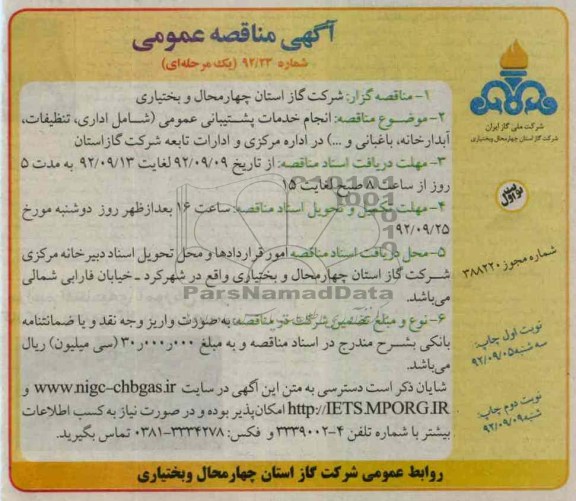 آگهی مناقصه عمومی
شماره ۹۲/۲۳ (یک مرحله‌ای)
شرکت ملی گاز ایران
شرکت گاز استان چهارمحال وبختیاری
نوبت اول
شماره مجوز ۳۸۸۲۲۰
نوبت اول چاپ:
سه شنبه ۹۲/۰۹/۰۵
نوبت دوم چاپ:
شنبه ۹۲/۰۹/۰۹
۱- مناقصه گزار: شرکت گاز استان چهارمحال و بختیاری
۲- موضوع مناقصه: انجام خدمات پشتیبانی عمومی (شامل اداری، تنظیفات،
آبدارخانه، باغبانی و ...) در اداره مرکزی و ادارات تابعه شرکت گازاستان
۳- مهلت دریافت اسناد مناقصه: از تاریخ ۹۲/۰۹/۰۹ لغایت ۹۲/۰۹/۱۳ به مدت ۵
روز از ساعت ۸ صبح لغایت ۱۵
۴- مهلت تکمیل و تحویل اسناد مناقصه: ساعت ۱۶ بعدازظهر روز دوشنبه مورخ
۹۲/۰۹/۲۵
۵- محل دریافت اسناد مناقصه امور قراردادها و محل تحویل اسناد دبیرخانه مرکزی
شرکت گاز استان چهارمحال و بختیاری واقع در شهرکرد ـ خیابان فارابی شمالی
می‌باشد.
ParsNamadData
۶- نوع و مبلغ تضمین شرکت در مناقصه: به صورت واریز وجه نقد و یا ضمانتنامه
بانکی بشرح مندرج در اسناد مناقصه و به مبلغ ۳۰٫۰۰۰٫۰۰۰ (سی میلیون) ریال
می‌باشد.
شایان ذکر است دسترسی به متن این آگهی در سایت www.nigc-chbgas.ir و
http://IETS.MPORG.IR امکان‌پذیر بوده و در صورت نیاز به کسب اطلاعات
بیشتر با شماره تلفن ۴-۳۳۳۹۰۰۲ و فکس: ۳۳۳۴۲۷۸-۰۳۸۱ تماس بگیرید.
روابط عمومی شرکت گاز استان چهارمحال وبختیاری